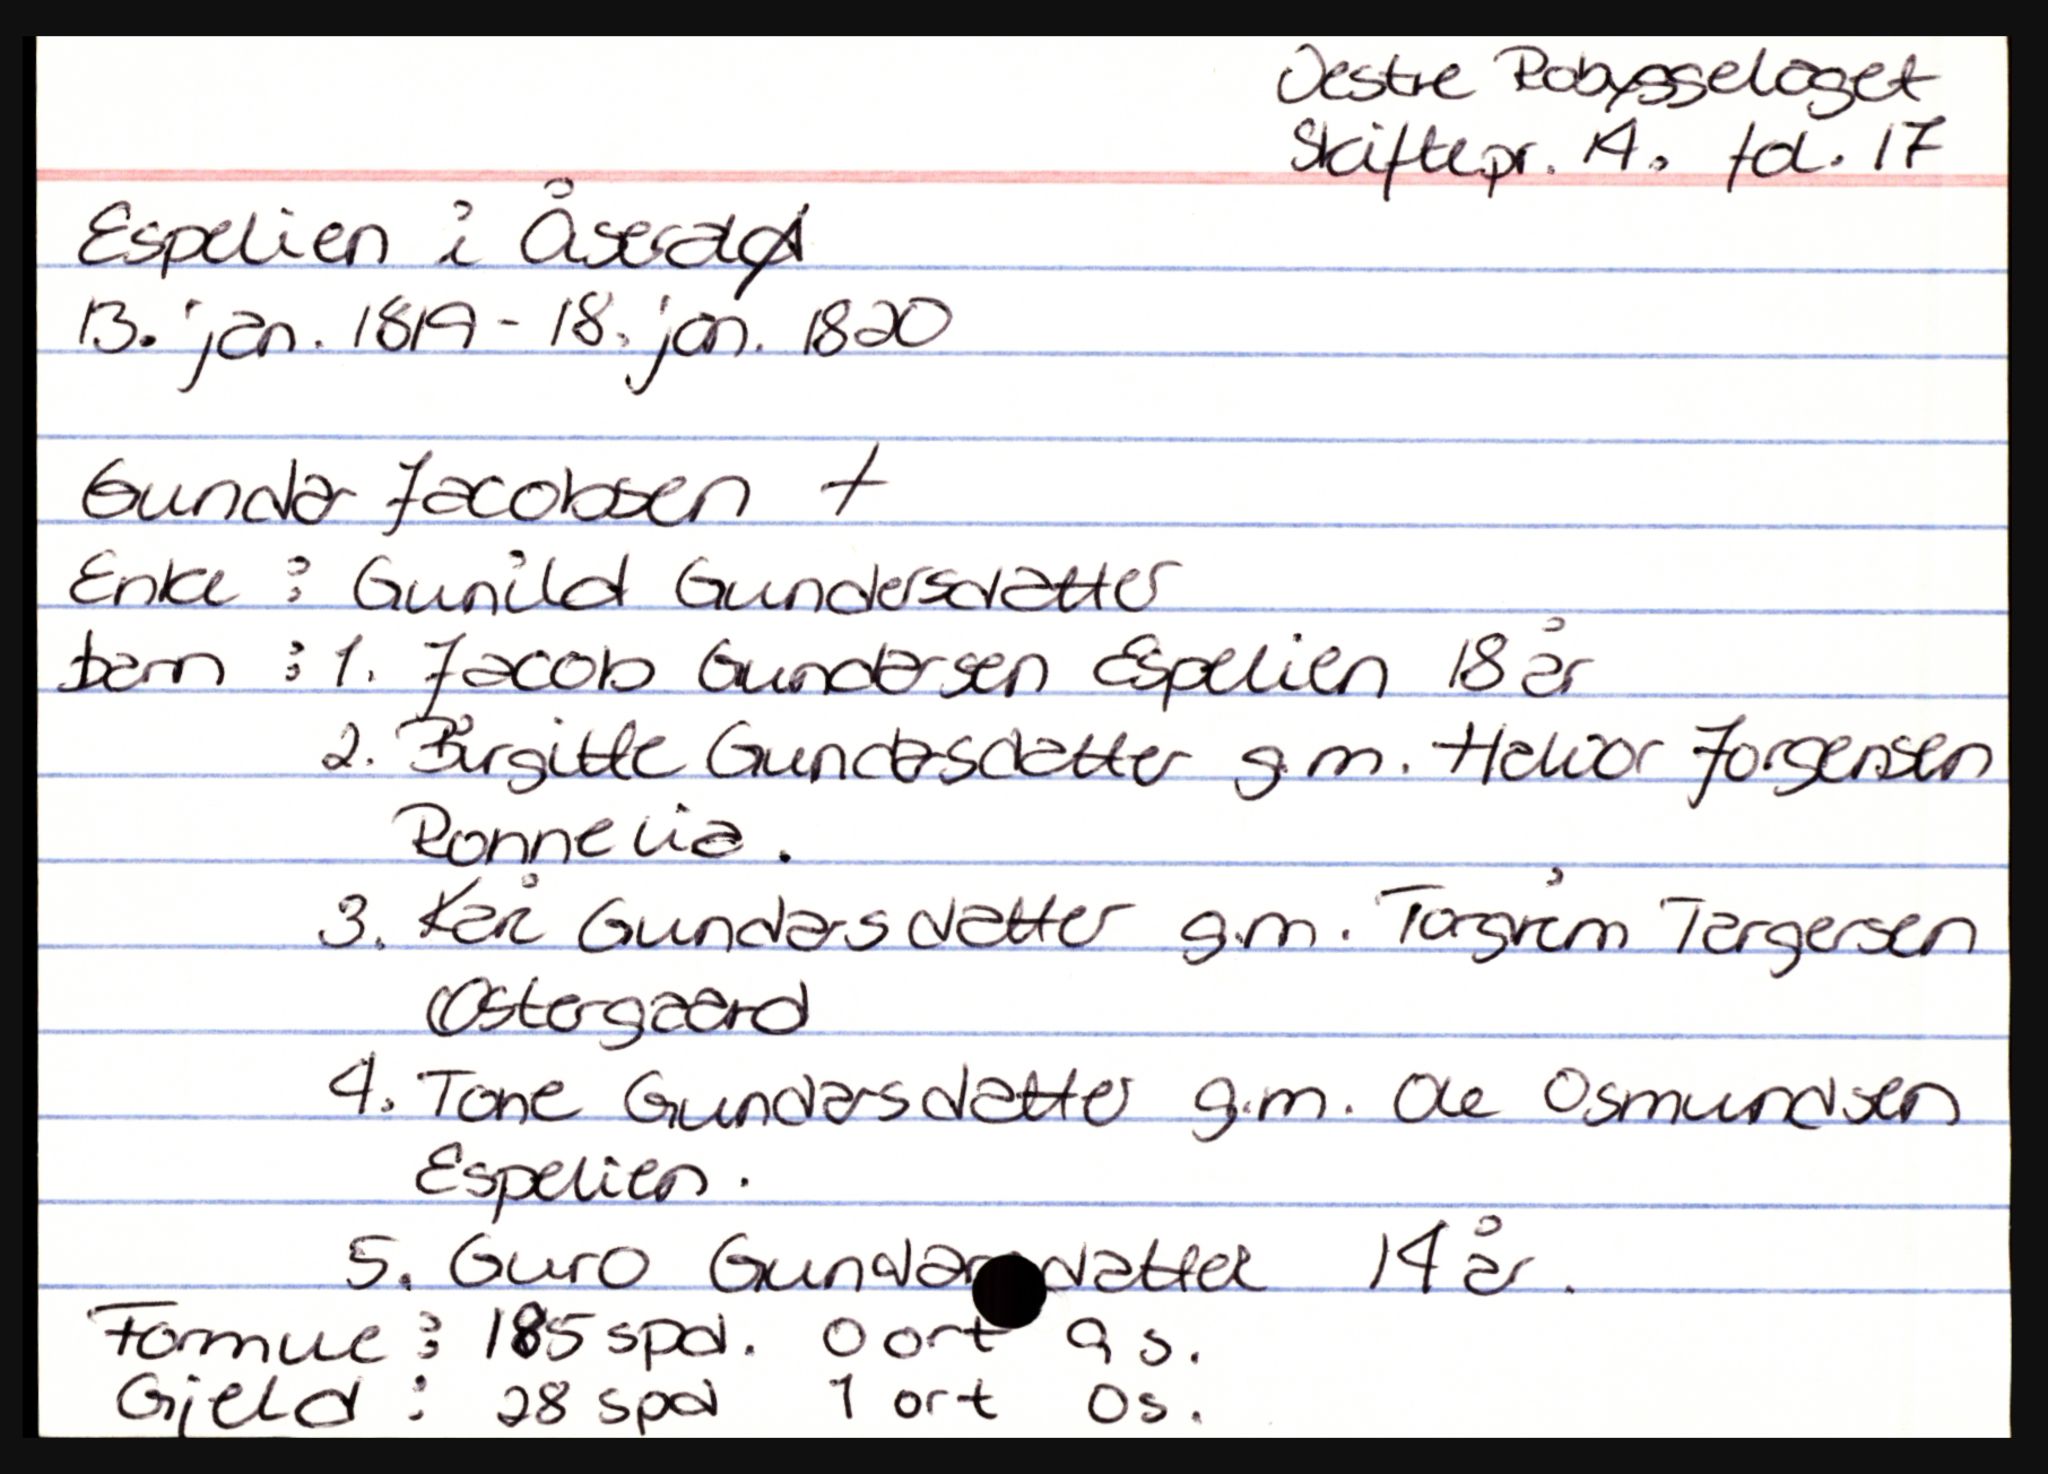 Vestre Robyggelaget
Skiftepr. 14. fol. 17
Espelien i Åserald
13. jan. 1819 - 18. jan. 1820
Gunder Jacobsen +
Enke : Gunild Gundersdatter
barn : 1. Jacob Gundersen Espelien 18 år
2. Birgitte Gundersdatter g.m. Halvor Jorgensen
Ronnelia.
3. Kari Gundersdatter g.m. Torgrim Tergersen
Ostergaard
4. Tone Gundersdatter g.m. Ole Osmundsen
Espelien.
5. Guro Gundersdatter 14 år.
Formue : 185 spd. 0 ort 9 s.
Gjeld : 28 spd 1 ort 0 s.